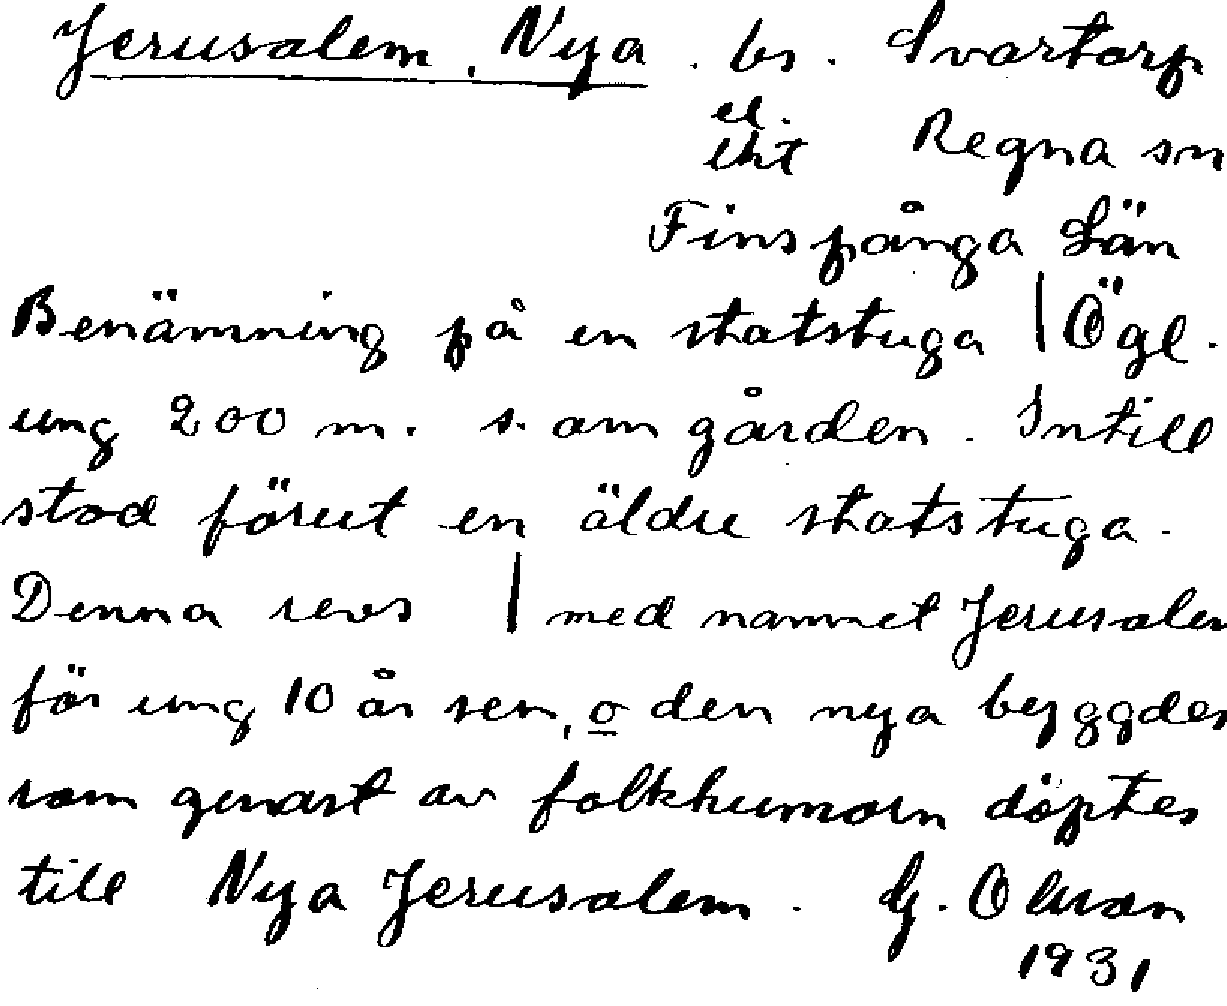 Jerusalem, Nya. bs. Svartorp
el.
Regna sn
Finspånga län
Benämning på en statstuga | Ögl.
ung 200 m. s. om gården. Intill
stod förut en äldre statstuga.
Denna revs | med namnet Jerusalem
för ung 10 år sen, o den nya byggdes
som genast av folkhumorn döptes
till Nya Jerusalem. G. Olson
1931